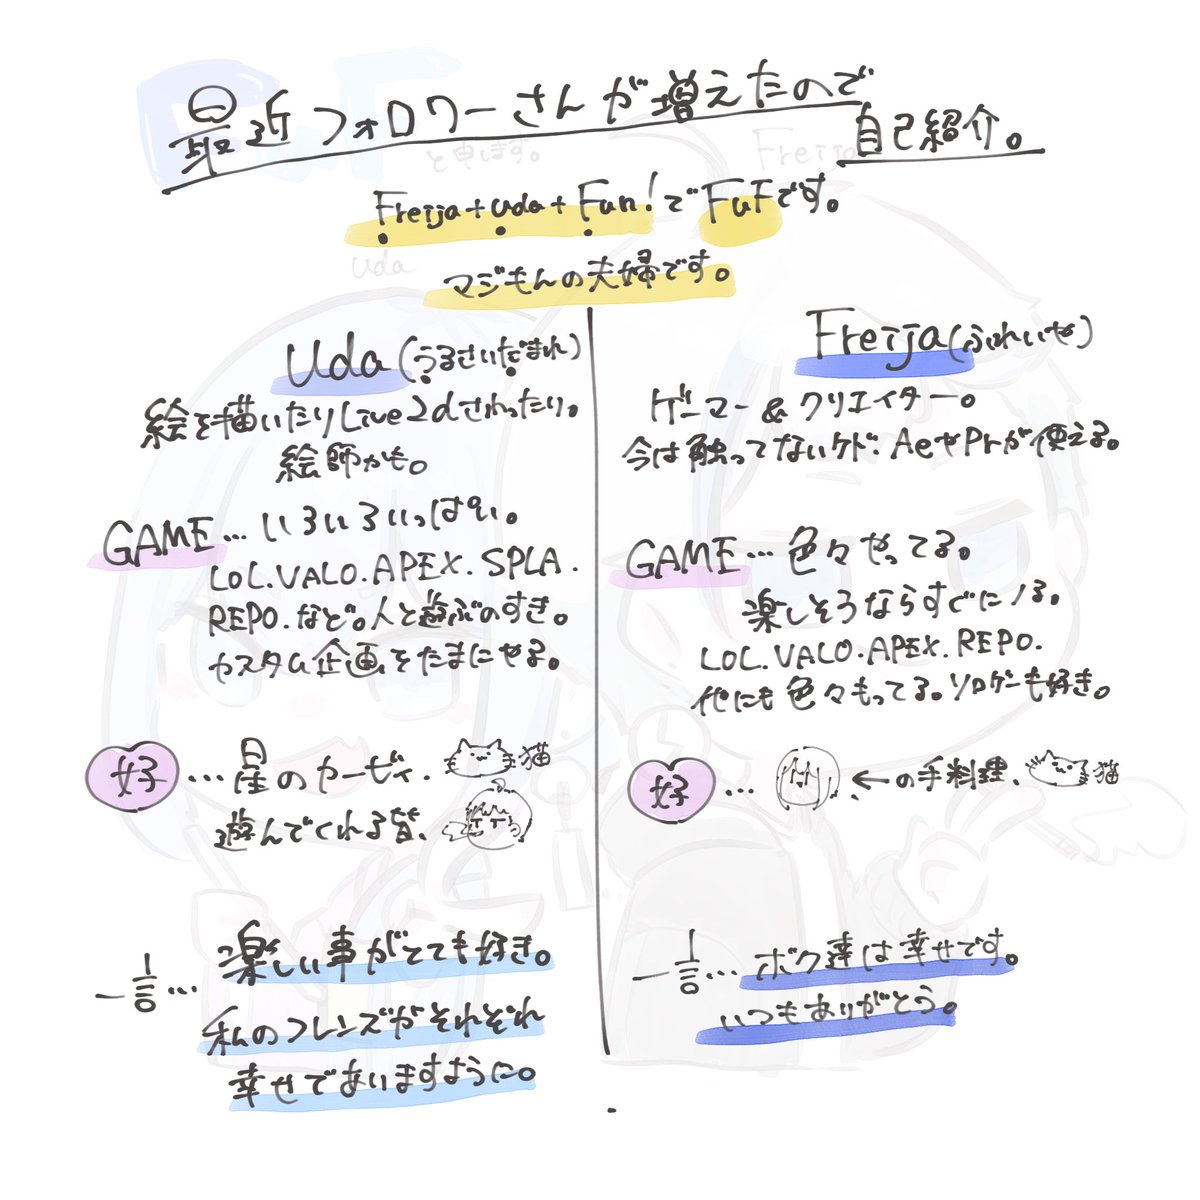 最近フォロワーさんが増えたので
自己紹介。
と申します。
Freija
Freija+uda+Fun!でFuFです。
uda
マジもんの夫婦です。
uda(うるさいだまれ)
絵を描いたりLive2dさわったり。
絵師かも。
GAME…いろいろいっぱい。
LoL.VALO.APEX.SPLA.
REPO.など。人と遊ぶのすき。
カスタム企画をたまにやる。
好…星のカービィ、猫
遊んでくれる皆、
一言…楽しい事がとても好き。
私のフレンズがそれぞれ
幸せでありますように。
Freija(ふれいや)
ゲーマー&クリエイター。
今は触ってないケド、AeやPrが使える。
GAME…色々やってる。
楽しそうならすぐにノる。
LoL.VALO.APEX.REPO.
他にも色々もってる。ソロゲーも好き。
好…←の手料理、猫
一言…ボク達は幸せです。
いつもありがとう。